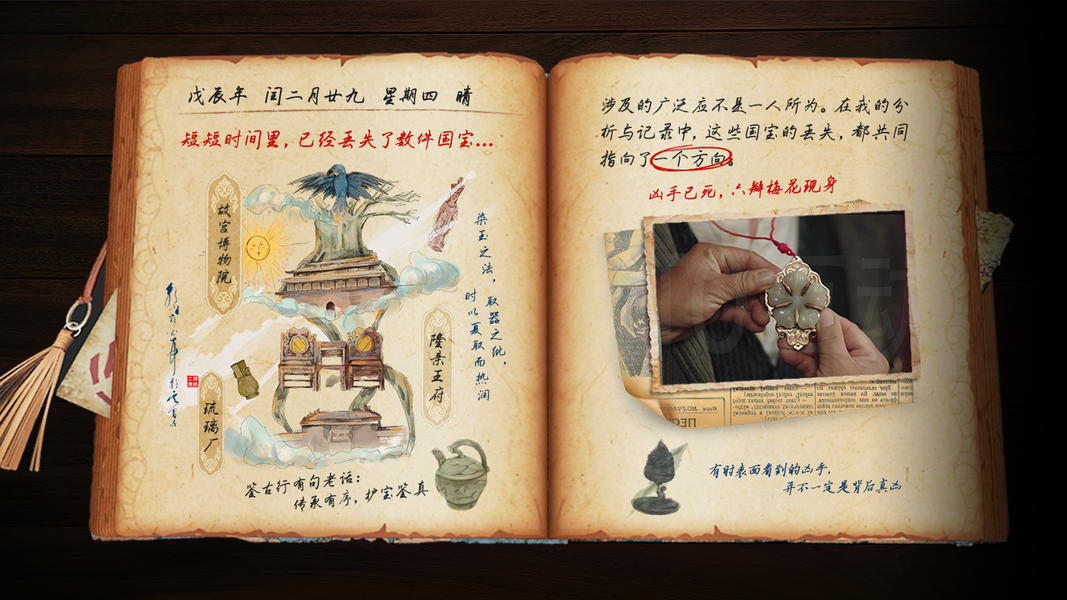 戊辰年 闰二月廿九 星期四 晴
短短时间里，已经丢失了数件国宝...
故宫博物院
染玉之法，取器之纰，
时以夏取而热润
隆亲王府
琉璃厂
鉴古行有句老话：
传承有序，护宝鉴真
涉及的广泛应不是一人所为。在我的分
析与记录中，这些国宝的丢失，都共同
指向了一个方向。
凶手已死，六瓣梅花现身
有时表面看到的凶手，
并不一定是背后真凶